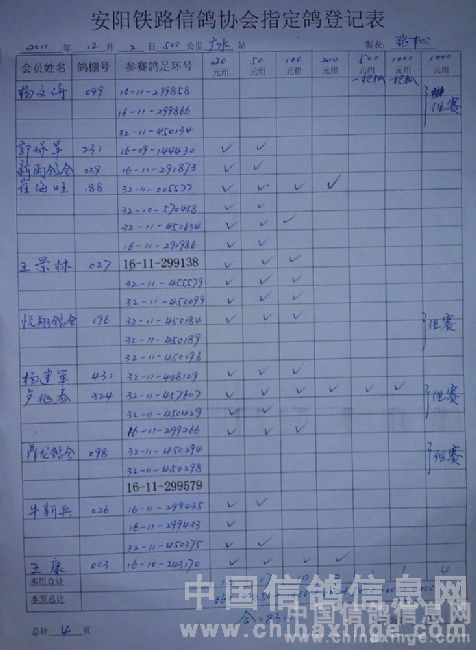 安阳铁路信鸽协会指定鸽登记表
2011 年 12 月 2 日 500 公里 广水 站 制表:
会员姓名 鸽棚号 参赛鸽足环号 20元组 50元组 100元组 200元组 500元组 1000元组 1000元组
099 16-11-299858
16-11-299866 组赛
32-11-450134
231 16-09-144430 ✓ ✓
039 16-11-291873 ✓ ✓
崔海旺 188 32-11-005577 ✓ ✓ ✓ ✓
32-10-570458 ✓ ✓
32-11-450634 ✓ ✓ ✓
16-11-291986 ✓ ✓
王景林 027 16-11-299138 ✓ ✓ ✓
32-11-455579 ✓ ✓ ✓
32-11-450099 ✓ ✓ ✓
悦翔鸽舍 196 32-11-450184 ✓ ✓ ✓ 组赛
32-11-450189
32-11-450196
杨建军 431 32-11-448129 ✓ ✓ ✓
324 32-11-457607 ✓ ✓ ✓ ✓ ✓ ✓ 组赛
32-11-450429 ✓ ✓
16-11-299266 ✓ ✓ ✓
鼎龙鸽舍 098 32-11-450294 组赛
32-11-450298
16-11-299579
牛新兵 026 16-11-299435 ✓ ✓
16-11-299433 ✓
32-11-450375 ✓ ✓
王康 003 16-10-243170 ✓ ✓ ✓ ✓
本组合计
本页总计
总计 4 页
中国信鸽信息网
www.chinaxinge.com
中国信鸽信息网
www.chinaxinge.com